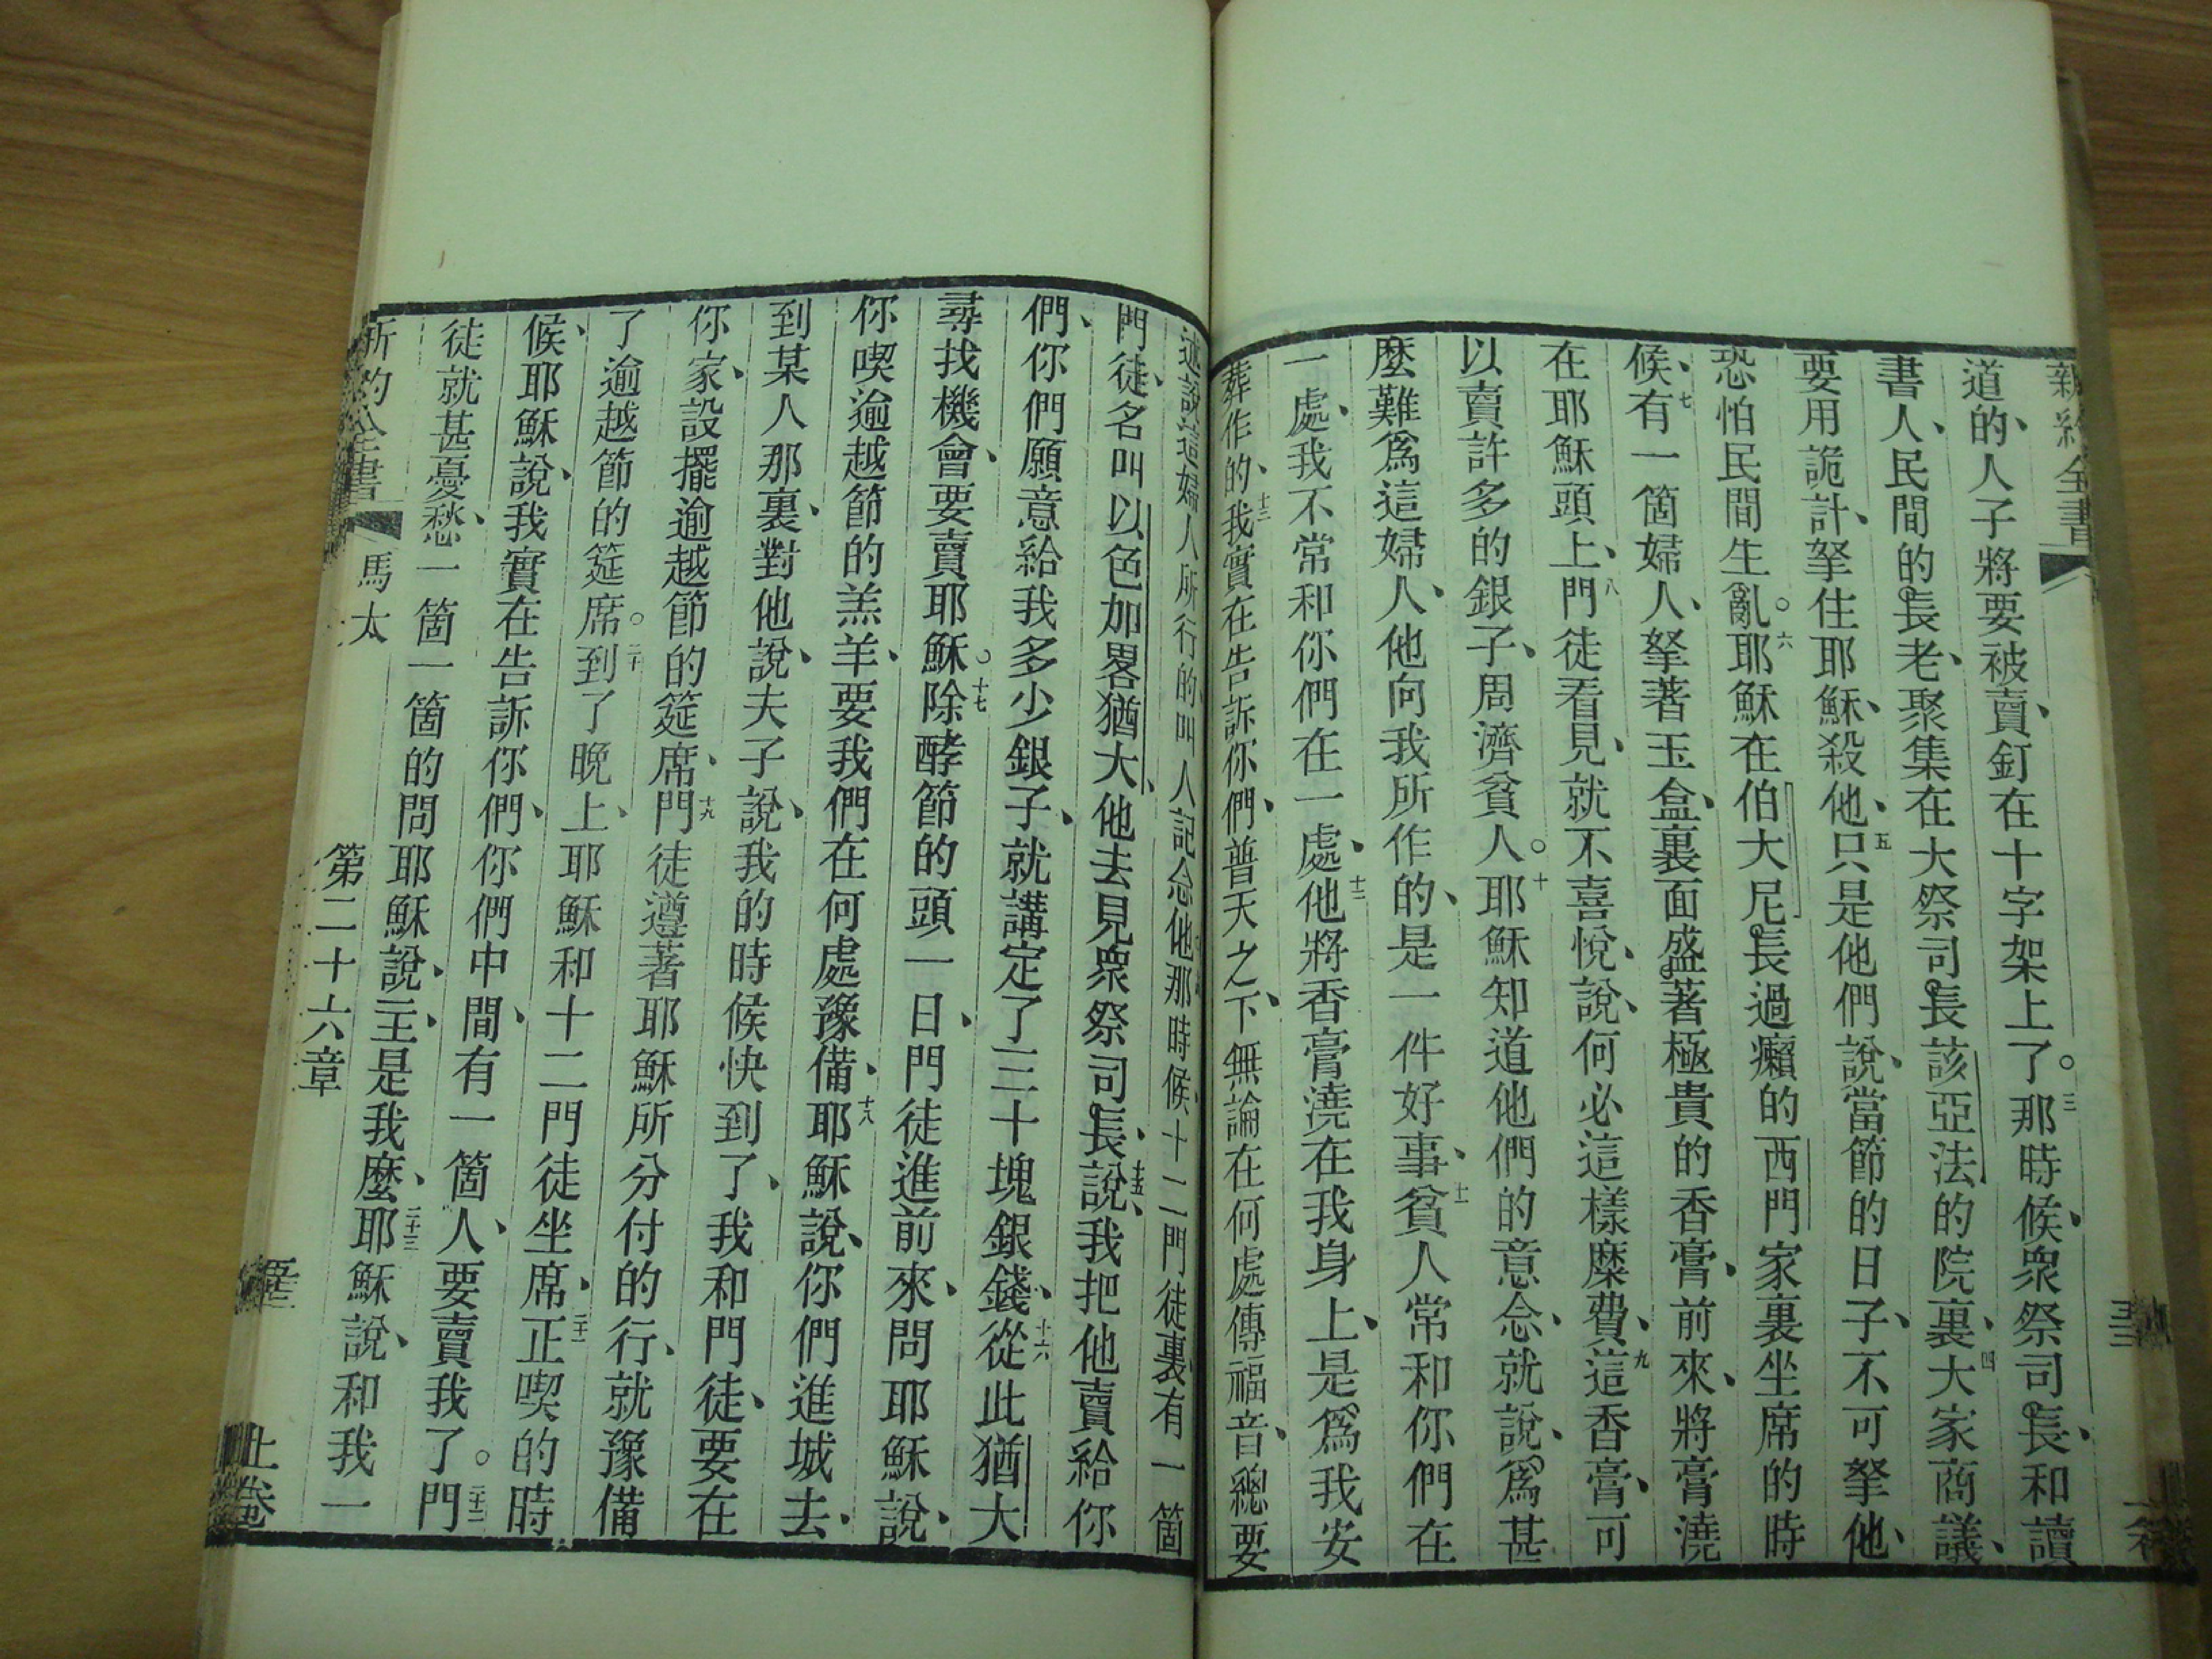 新約全書
道的、人子將要被賣、釘在十字架上了。三那時候、衆祭司長、和讀
書人、民間的長老、聚集在大祭司長該亞法的院裏、四大家商議、
要用詭計、拏住耶穌、殺他、五只是他們說、當節的日子、不可拏他、
恐怕民間生亂。六耶穌在伯大尼長過癩的西門家裏坐席的時
候、七有一箇婦人、拏著玉盒、裏面盛著極貴的香膏、前來、將膏澆
在耶穌頭上、八門徒看見、就不喜悅、說、何必這樣糜費、九這香膏、可
以賣許多的銀子、周濟貧人。十耶穌知道他們的意念、就說、爲甚
麼難爲這婦人、他向我所作的、是一件好事、十一貧人常和你們在
一處、我不常和你們在一處、十二他將香膏澆在我身上、是爲我安
葬作的、十三我實在告訴你們、普天之下、無論在何處傳福音、總要
述說這婦人所行的、叫人記念他。那時候、十二門徒裏、有一箇
門徒、名叫以色加畧猶大、他去見衆祭司長、十五說、我把他賣給你
們、你們願意給我多少銀子、就講定了三十塊銀錢、十六從此猶大
尋找機會、要賣耶穌。十七除酵節的頭一日、門徒進前來、問耶穌說、
你喫逾越節的羔羊、要我們在何處豫備、十八耶穌說、你們進城去、
到某人那裏、對他說、夫子說、我的時候快到了、我和門徒、要在
你家、設擺逾越節的筵席、十九門徒遵著耶穌所分付的行、就豫備
了逾越節的筵席。二十到了晚上、耶穌和十二門徒坐席、二十一正喫的時
候、耶穌說、我實在告訴你們、你們中間、有一箇人、要賣我了。二十二門
徒就甚憂愁、一箇一箇的問耶穌說、主、是我麼、二十三耶穌說、和我一
新約全書 馬太 第二十六章 上卷